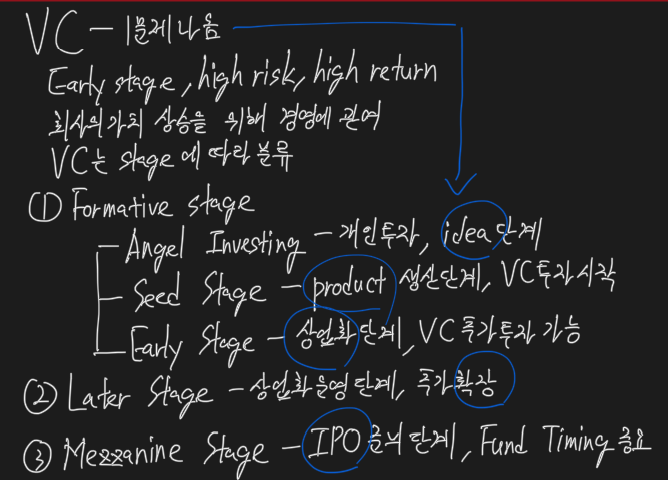 VC - 1문제 나옴
Early stage, high risk, high return
회사의 가치 상승을 위해 경영에 관여
VC는 stage에 따라 분류
① Formative stage
- Angel Investing - 개인투자, idea단계
- Seed Stage - product 생산단계, VC투자시작
- Early Stage - 상업화단계, VC 추가투자 가능
② Later Stage - 상업화 운영단계, 추가확장
③ Mezzanine Stage - IPO 준비단계, Fund Timing 중요